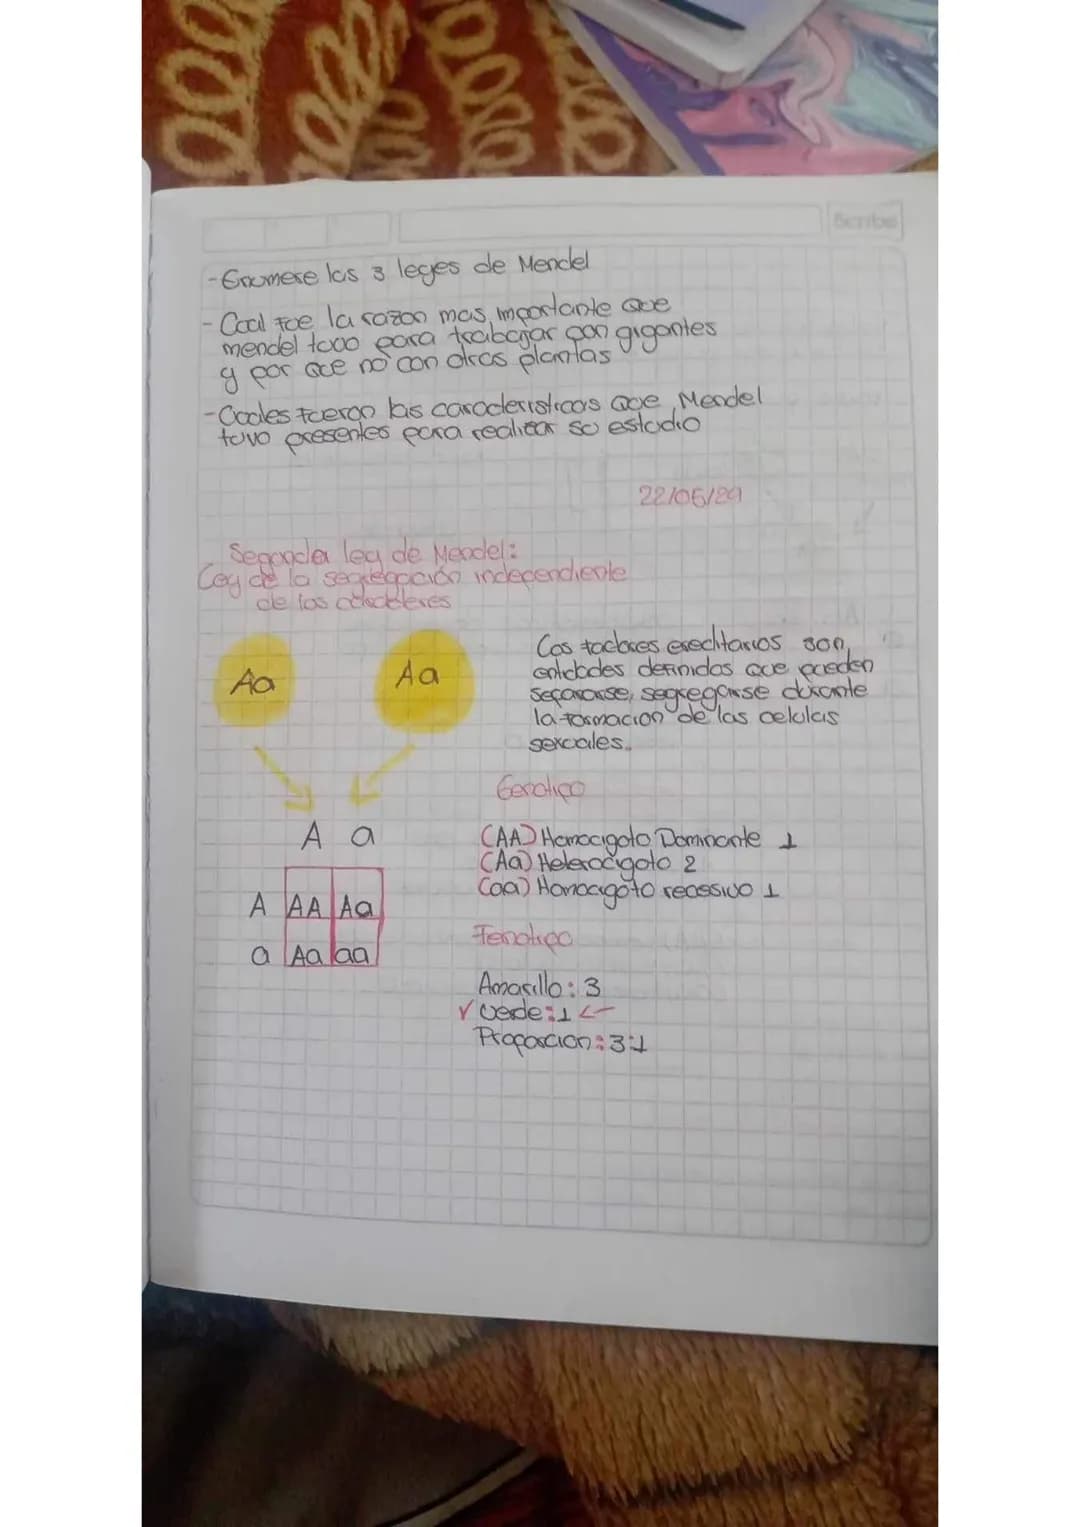 Scribe
- Enumere las 3 leyes de Mendel
- Cual fue la razon mas importante que
mendel tuvo para trabajar con gigantes
y por que no con otras plantas
- Cuales fueron las caracteristicas que Mendel
tuvo presentes para realizar su estudio
22/05/24
Segunda ley de Mendel:
Ley de la segregación independiente
de los caracteres
Aa Aa
Los factores ereditarios son,
entidades definidas que pueden
separarse, segregarse durante
la formacion de las celulas
sexuales.
A a
A AA Aa
a Aa aa
Genotipo
(AA) Homocigoto Dominante 1
(Aa) Heterocigoto 2
(aa) Homocigoto recessivo 1
Fenotipo
Amarillo: 3
✓ verde: 1 ←
Proporcion: 3:1